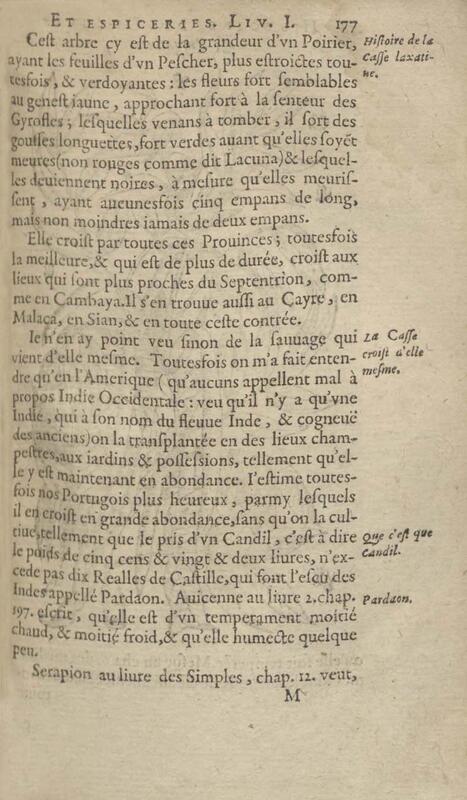 ET ESPICERIES. LIV. I. 177
Cest arbre cy est de la grandeur d'vn Poirier,
ayant les feuilles d'vn Pescher, plus estroictes tou-
tesfois, & verdoyantes : les fleurs fort semblables
au genest iaune, approchant fort à la senteur des
Gyrofles ; lesquelles venans à tomber, il sort des
gousses longuettes, fort verdes auant qu'elles soyẽt
meures (non rouges comme dit Lacuna) & lesquel-
les deuiennent noires, à mesure qu'elles meuris-
sent, ayant aucunesfois cinq empans de long,
mais non moindres iamais de deux empans.
Histoire de la
Casse laxati-
ue.
Elle croist par toutes ces Prouinces ; toutesfois
la meilleure, & qui est de plus de durée, croist aux
lieux qui sont plus proches du Septentrion, com-
me en Cambaya. Il s'en trouue aussi au Cayre, en
Malaca, en Sian, & en toute ceste contrée.
Ie n'en ay point veu sinon de la sauuage qui
vient d'elle mesme. Toutesfois on m'a fait enten-
dre qu'en l'Amerique ( qu'aucuns appellent mal à
propos Indie Occidentale : veu qu'il n'y a qu'vne
Indie, qui a son nom du fleuue Inde, & cogneuë
des anciens) on la transplantée en des lieux cham-
pestres, aux iardins & possessions, tellement qu'el-
le y est maintenant en abondance. I'estime toutes-
fois nos Portugois plus heureux, parmy lesquels
il en croist en grande abondance, sans qu'on la cul-
tiue, tellement que le pris d'vn Candil, c'est à dire
le poids de cinq cens & vingt & deux liures, n'ex-
cede pas dix Realles de Castille, qui font l'escu des
Indes appellé Pardaon. Auicenne au liure 2. chap.
197. escrit, qu'elle est d'vn temperament moitié
chaud, & moitié froid, & qu'elle humecte quelque
peu.
La Casse
croist d'elle
mesme.
Que c'est que
Candil.
Pardaon.
Serapion au liure des Simples, chap. 12. veut,
M